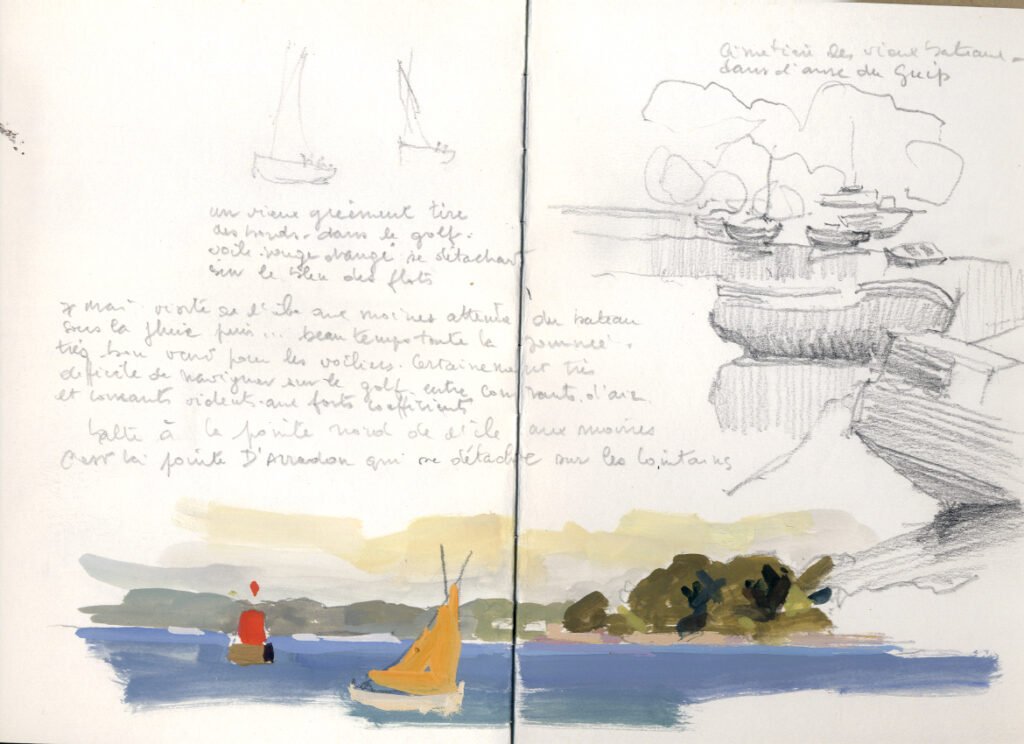 un vieux gréement tire
des bords. dans le golf.
voile rouge orangé se détachant
sur le bleu des flots
7 mai visite de l'île aux moines attente du bateau
sous la pluie puis... beau temps toute la journée.
très bon vent pour les voiliers. Certainement très
difficile de naviguer sur le golf entre courants d'air
et courants violents. aux forts coefficients
halte à la pointe nord de l'île aux moines
C'est la pointe D'Arradon qui se détache sur les lointains
Cimetière des vieux bateaux
dans l'anse du Guip